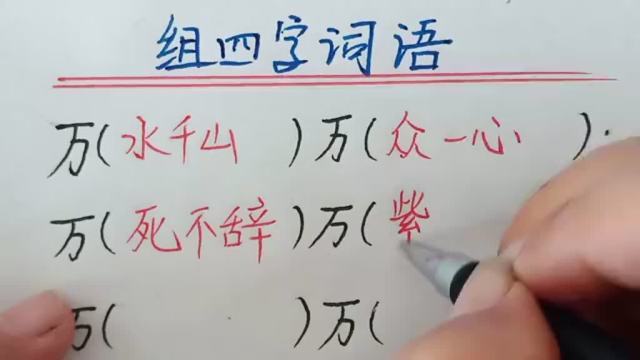 组四字词语
万(水千山 )万(众一心 ).
万(死不辞)万(紫
万( )万(